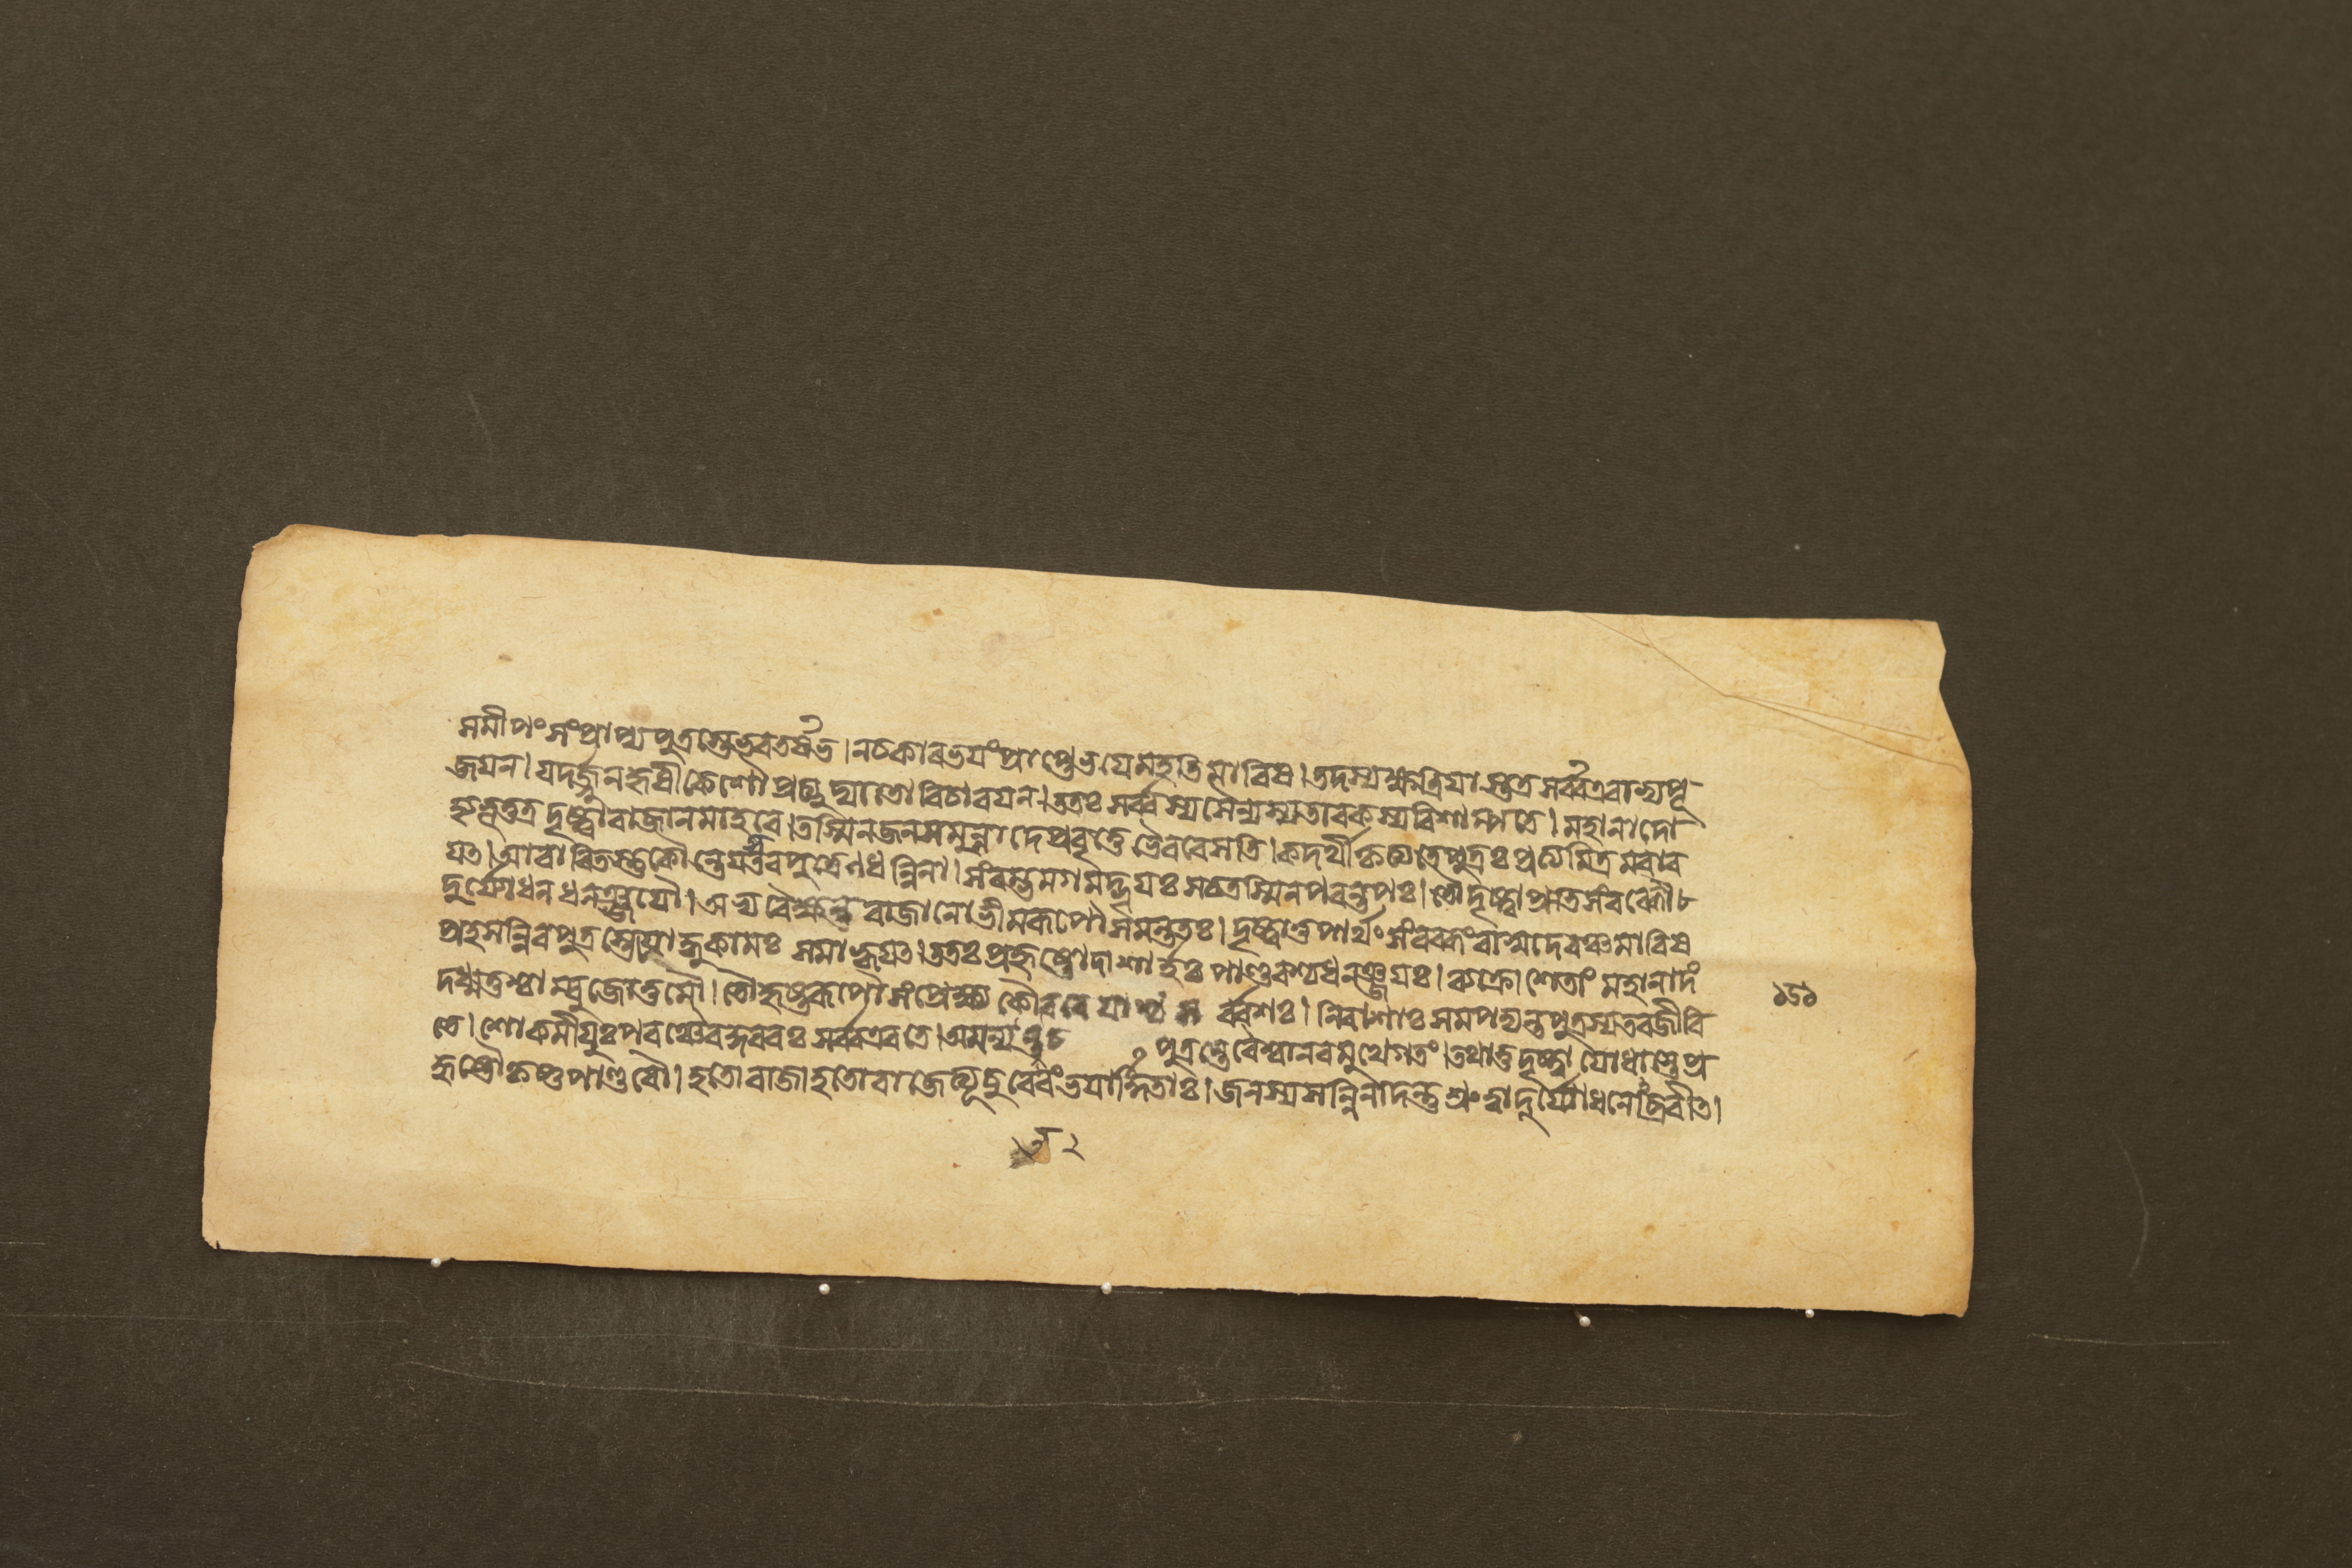 সমীপং সংপ্রাপ্য পুত্রস্তে ভরতর্ষভ। ন চকার ভয়ং প্রাপ্তে ভয়ে মহতি মারিষ। তদস্য ক্ষত্রিয়াস্তত্র সর্ব্ব এবাভ্যপূ
জয়ন। যদর্জ্জুনহৃষীকেশৌ প্রত্যুদ্যাতো বিচারয়ন। ততঃ সর্ব্বস্য সৈন্যস্য তাবকস্য বিশাম্পতে। মহানাদো
হ্যভূত্তত্র দৃষ্ট্বা রাজানমাহবে। তস্মিন জনসমুন্নাদে প্রবৃত্তে ভৈরবে সতি। কদর্থীকৃত্য তে পুত্রঃ প্রত্যমিত্রমবার
যত। আবারিতস্তু কৌন্তেয়স্তব পুত্রেণ ধন্বিনা। সংরম্ভমগমদ্ভূয়ঃ স চ তস্মিন পরন্তপঃ। তৌ দৃষ্ট্বা প্রতিসংরব্ধৌ
দুর্য্যোধনধনঞ্জয়ৌ। অভ্যবৈক্ষন্ত রাজানো ভীমরূপৌ সমন্ততঃ। দৃষ্ট্বা তু পার্থং সংরব্ধং বাসুদেবঞ্চ মারিষ
প্রহসন্নিব পুত্রস্তে যোদ্ধুকামঃ সমাহ্বয়ত। ততঃ প্রহৃষ্টো দাশার্হঃ পাণ্ডবশ্চ ধনঞ্জয়ঃ। ব্যক্রোশেতাং মহানাদং
দধ্মতুশ্চাম্বুজোত্তমৌ। তৌ হৃষ্টরূপৌ সংপ্রেক্ষ্য কৌরবেয়াশ্চ সর্ব্বশঃ। নিরাশাঃ সমপদ্যন্ত পুত্রস্য তব জীবি
১৫১
তে। শোকমীয়ুঃ পরঞ্চৈব কুরবঃ সর্ব্ব এব তে। অমন্যন্ত চ পুত্রন্তে বৈশ্বানরমুখে গতং। তথা তু দৃষ্ট্বা যোধাস্তে প্র
হৃষ্টৌ কৃষ্ণপাণ্ডবৌ। হতো রাজা হতো রাজেত্যূচুরেবং ভয়ার্দ্দিতাঃ। জনস্য সন্নিনাদন্তু শ্রুত্বা দুর্য্যোধনোঽব্রবীত।